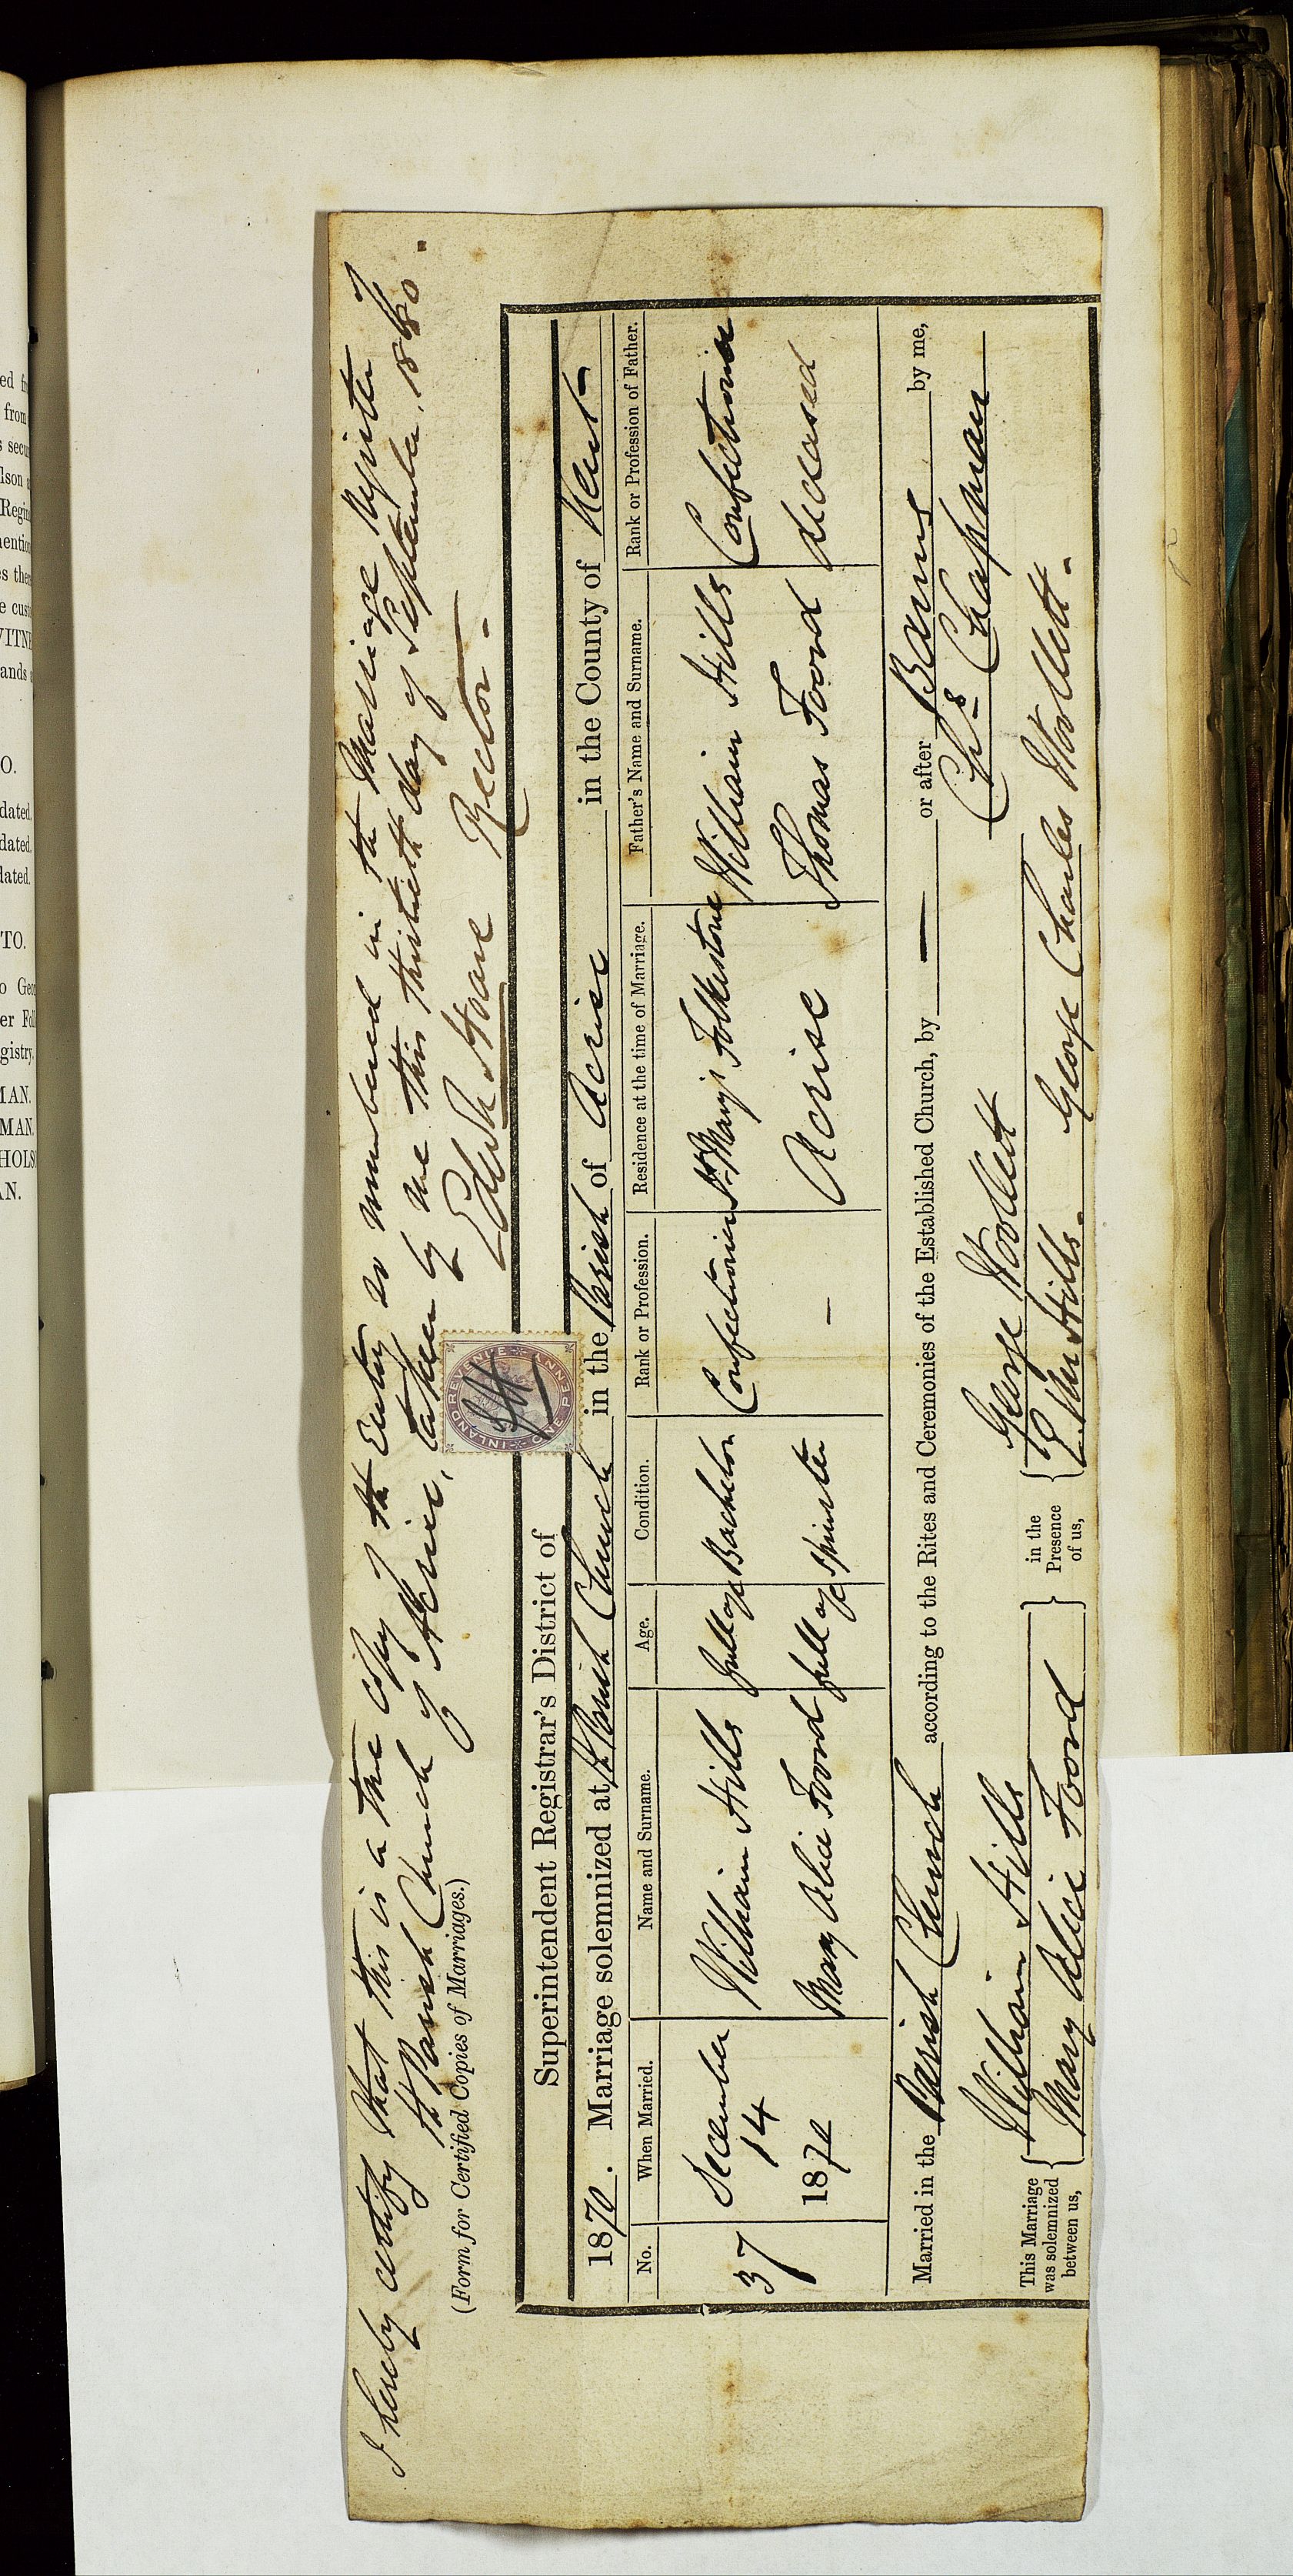 I hereby certify that this is a true copy of the Entry so numbered in the Marriage Register of
the Parish Church of Acrise, taken by me this thirtieth day of September, 1880.
(Form for Certified Copies of Marriages.)
Rector.
INLAND REVENUE
ONE PENNY
Superintendent Registrar's District of
1870. Marriage solemnized at the Parish Church in the Parish of Acrise in the County of Kent
No. When Married. Name and Surname. Age. Condition. Rank or Profession. Residence at the time of Marriage. Father's Name and Surname. Rank or Profession of Father.
37 December 14 1870
William Hills full age Bachelor Confectioner St. Mary's Folkestone William Hills Confectioner
Mary Alice Foord full age Spinster — Acrise Thomas Foord deceased
Married in the Parish Church according to the Rites and Ceremonies of the Established Church, by — or after Banns by me,
Chs Chapman
This Marriage was solemnized between us,
William Hills
Mary Alice Foord
in the Presence of us,
George Woollett
Hills. George Charles Woollett.
ed
from
s secu
lson
Regin
mention
s the
e cust
VITNE
ands
O.
dated.
dated.
dated.
TO.
o Geo
er Fol
gistry.
MAN.
MAN.
HOLS
AN.